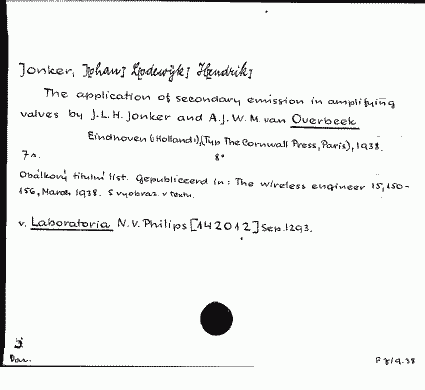 Jonker, J[ohan] L[odewijk] H[endrik]
The application of secondary emission in amplifying
valves by J.L.H. Jonker and A.J.W.M. van Overbeek
Eindhoven (Holland), (Typ The Cornwall Press, Paris), 1938.
7 s. 8°
Obálkový titulní list. Gepubliceerd in: The wireless engineer 15, 150-
156, March 1938. S vyobraz. v textu.
v. Laboratoria N.V. Philips [142012] Sep. 1293.
Dar. F 7/9.38